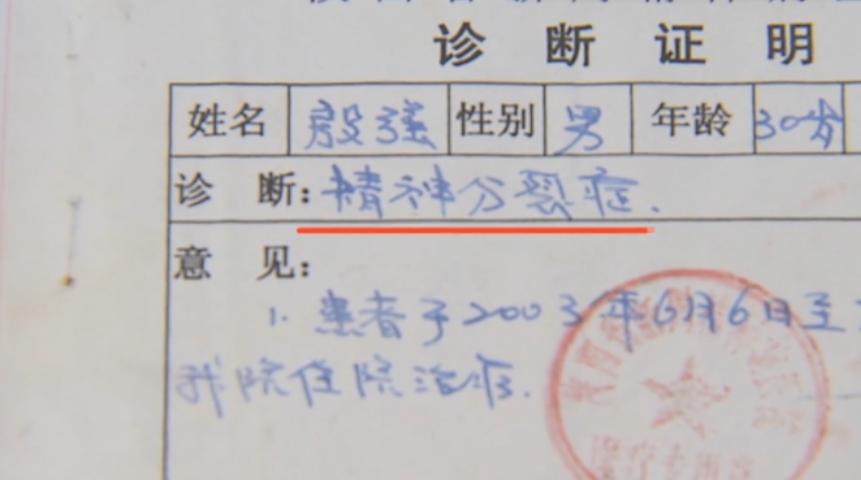 诊断证明
姓名 殷强 性别 男 年龄 30岁
诊 断:精神分裂症.
意 见:
1. 患者于2003年6月6日至
我院住院治疗.
医疗专用章